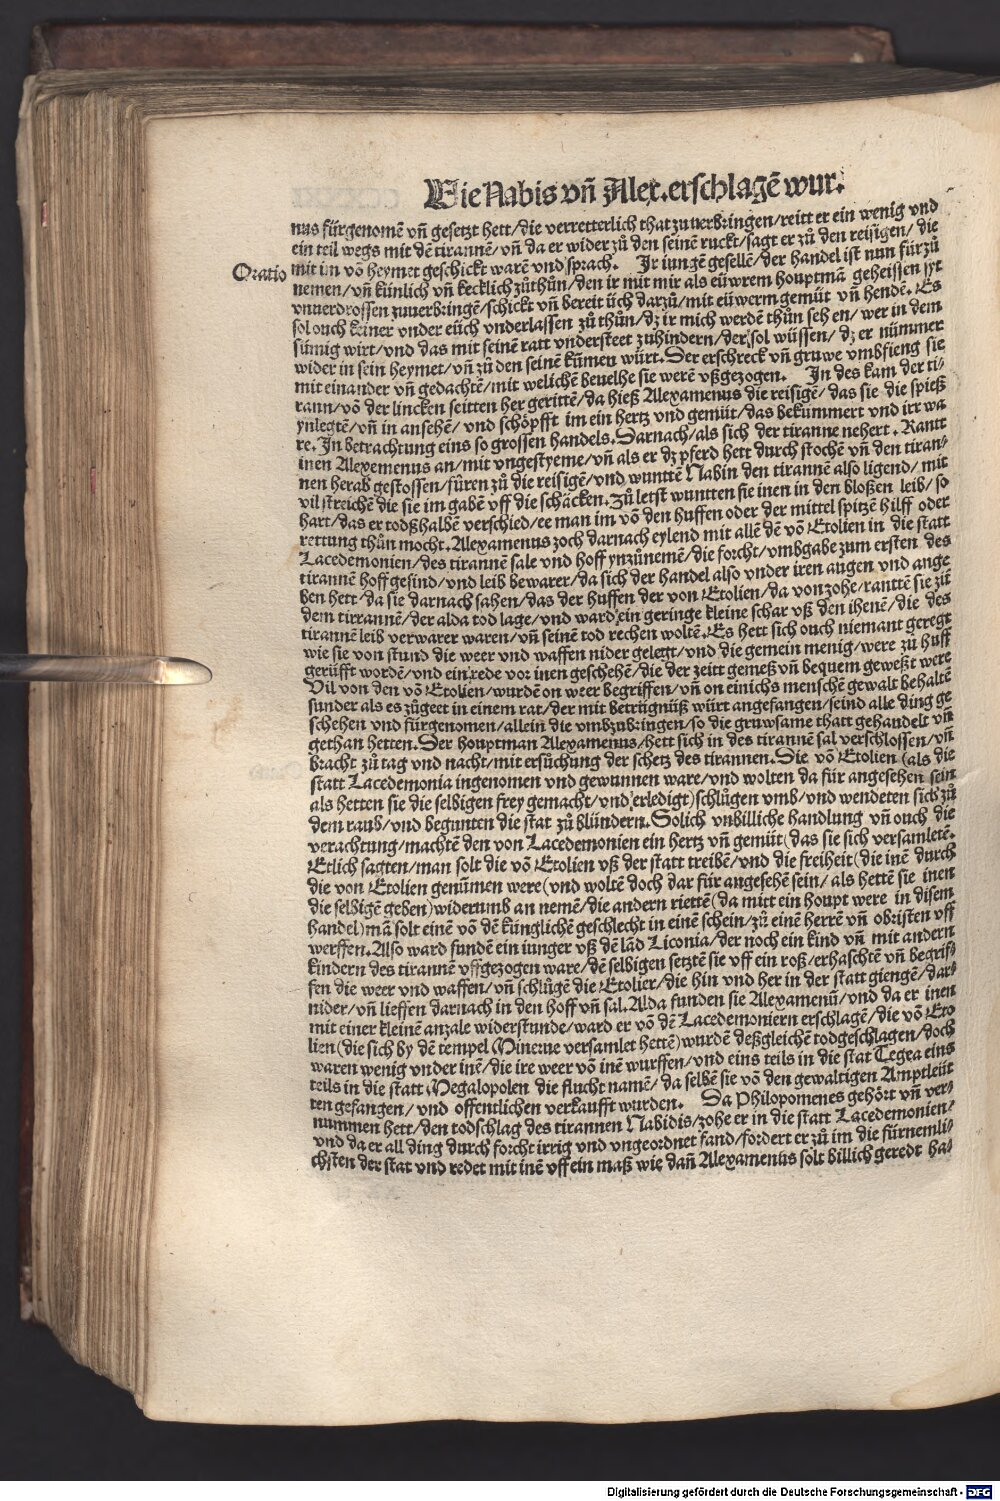 Wie Nabis vn̄ Alex. erschlagē wur.
nus fürgenomē vn̄ gesetzt hett/die verretterlich that zuuerbringen/reitt er ein wenig vnd
ein teil wegs mit dē tirannē/vn̄ da er wider zů den seinē ruckt/sagt er zů den reisigen/ die
Oratio
mit im vō heymet geschickt warē vnd sprach. Ir iungē gesellē/der handel ist nun für zů
nemen/vn̄ künlich vn̄ kecklich zůthůn/den ir mit mir als eüwrem houptmā geheissen syt
vnuerdrossen zuuerbringē/schickt vn̄ bereit üch darzů/mit eüwerm gemüt vn̄ hendē. Es
sol ouch keiner vnder eüch vnderlassen zů thůn/dz ir mich werdē thůn seh en/ wer in dem
sümig wirt/vnd das mit seinē ratt vndersteet zuhindern/der sol wüssen/ dz er nümmer
wider in sein heymet/vn̄ zů den seinē kūmen würt. Der erschreck vn̄ gruwe vmbfieng sie
mit einander vn̄ gedachtē/mit welichē beuelhe sie werē vßgezogen. In des kam der ti-
rann/vō der lincken seitten her gerittē/da hieß Alexamenus die reisigē/das sie die spieß
ynlegtē/vn̄ in ansehē/ vnd schöpfft im ein hertz vnd gemüt/das bekümmert vnd irr wa
re. In betrachtung eins so grossen handels. Darnach/als sich der tiranne nehert. Rantt
inen Alexemenus an/mit vngestyeme/vn̄ als er dz pferd hett durch stochē vn̄ den tiran-
nen herab gestossen/fůren zů die reisigē/vnd wunttē Nabin den tirannē also ligend/ mit
vil streichē die sie im gabē vff die schäcken. Zů letst wuntten sie inen in den bloßen leib/ so
hart/das er todßhalbē verschied/ee man im vō den huffen oder der mittel spitzē hilff oder
rettung thůn mocht. Alexamenus zoch darnach eylend mit allē dē vō Etolien in die statt
Lacedemonien/des tirannē sale vnd hoff ynzůnemē/die forcht/vmbgabe zum ersten des
tirannē hoff gesind/vnd leib bewarer/da sich der handel also vnder iren augen vnd ange
ben hett/da sie darnach sahen/das der huffen der von Etolien/da von zohe/ranttē sie zů
dem tirrannē/der alda tod lage/vnd ward ein geringe kleine schar vß den ihenē/die des
tirannē leib verwarer waren/vn̄ seinē tod rechen woltē. Es hett sich ouch niemant geregt
wie sie von stund die weer vnd waffen nider gelegt/vnd die gemein menig/were zů huff
gerüfft wordē/vnd ein rede vor inen geschehē/die der zeitt gemeß vn̄ bequem geweßt were
Vil von den vō Etolien/wurdē on weer begriffen/vn̄ on einichs menschē gewalt behaltē
sunder als es zůgeet in einem rat/der mit betrügnüß würt angefangen/seind alle ding ge
schehen vnd fürgenomen/allein die vmbzubringen/so die gruwsame thatt gehandelt vn̄
gethan hetten. Der houptman Alexamenus/hett sich in des tirannē sal verschlossen/vn̄
bracht zů tag vnd nacht/mit ersůchung der schetz des tirannen. Die vō Etolien (als die
statt Lacedemonia ingenomen vnd gewunnen ware/vnd wolten da für angesehen sein
als hetten sie die selbigen frey gemacht/vnd erledigt)schlůgen vmb/vnd wendeten sich zů
dem raub/vnd begunten die stat zů blündern. Solich vnbilliche handlung vn̄ ouch die
verachtung/machtē den von Lacedemonien ein hertz vn̄ gemüt(das sie sich versamletē.
Etlich sagten/man solt die vō Etolien vß der statt treibē/vnd die freiheit(die inē durch
die von Etolien genūmen were(vnd woltē doch dar für angesehē sein/ als hettē sie inen
die selbigē geben)widerumb an nemē/die andern riettē(da mitt ein houpt were in disem
handel)mā solt einē vō dē künglichē geschlecht in einē schein/zů einē herrē vn̄ obristen vff
werffen. Also ward fundē ein iunger vß dē lād Liconia/der noch ein kind vn̄ mit andern
kindern des tirannē vffgezogen ware/dē selbigen setztē sie vff ein roß/erhaschtē vn̄ begrif-
fen die weer vnd waffen/vn̄ schlůgē die Etolier/die hin vnd her in der statt giengē/dar-
nider/vn̄ lieffen darnach in den hoff vn̄ sal. Alda funden sie Alexamenū/vnd da er inen
mit einer kleinē anzale widerstunde/ward er vō dē Lacedemoniern erschlagē/die vō Eto
lien(die sich by dē tempel Minerue versamlet hettē)wurdē deßgleichē todgeschlagen/doch
waren wenig vnder inē/die ire weer vō inē wurffen/vnd eins teils in die stat Tegea eins
teils in die statt Megalopolen die flucht namē/ da selbē sie vō den gewaltigen Amptleüt
ten gefangen/ vnd offentlichen verkaufft wurden. Da Philopomenes gehört vn̄ ver-
nummen hett/den todschlag des tirannen Nabidis/zohe er in die statt Lacedemonien/
vnd da er all ding durch forcht irrig vnd vngeordnet fand/fordert er zů im die fürnemli-
chsten der stat vnd redet mit inē vff ein maß wie dañ Alexamenus solt billich geredt ha-
Digitalisierung gefördert durch die Deutsche Forschungsgemeinschaft - DFG